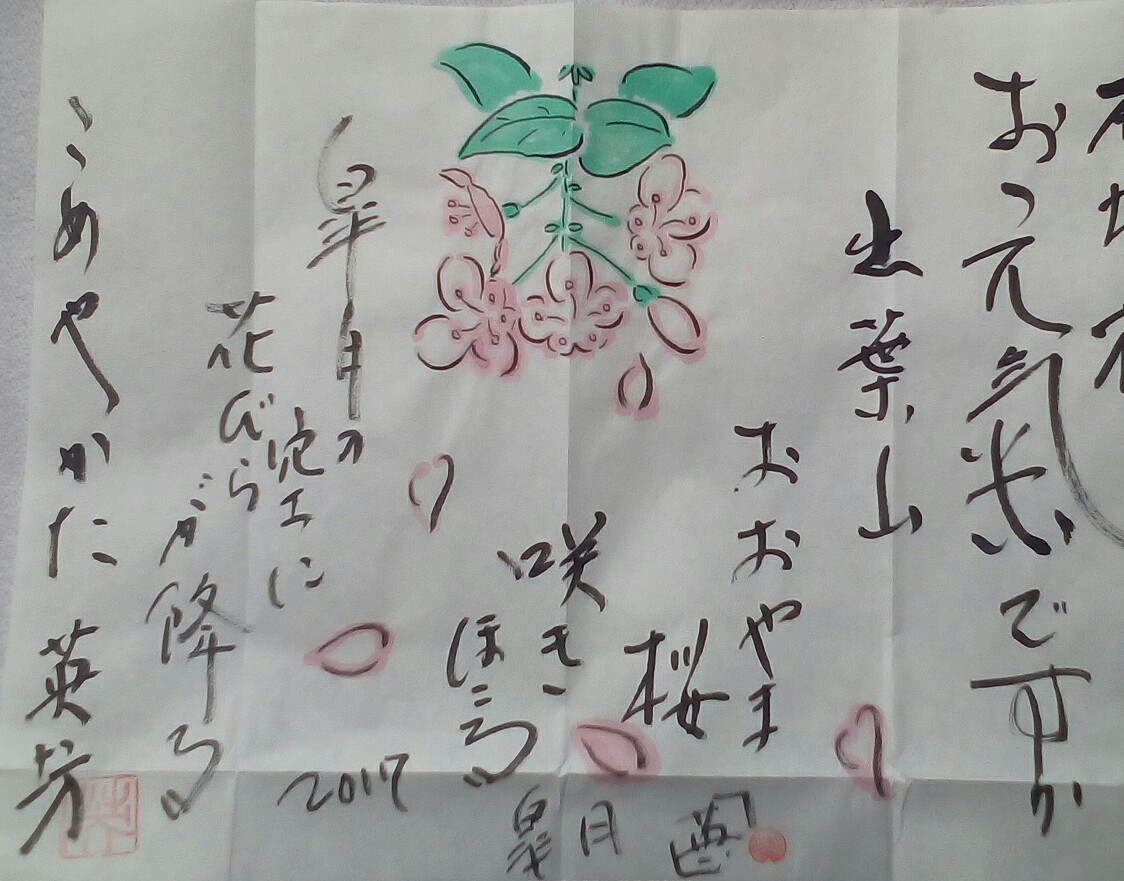 お元気ですか
出葉山
おおやま
桜
咲き
ほこる
皐月
2017
皐月の
空に
花びら
が降る
うめやかた 英芳